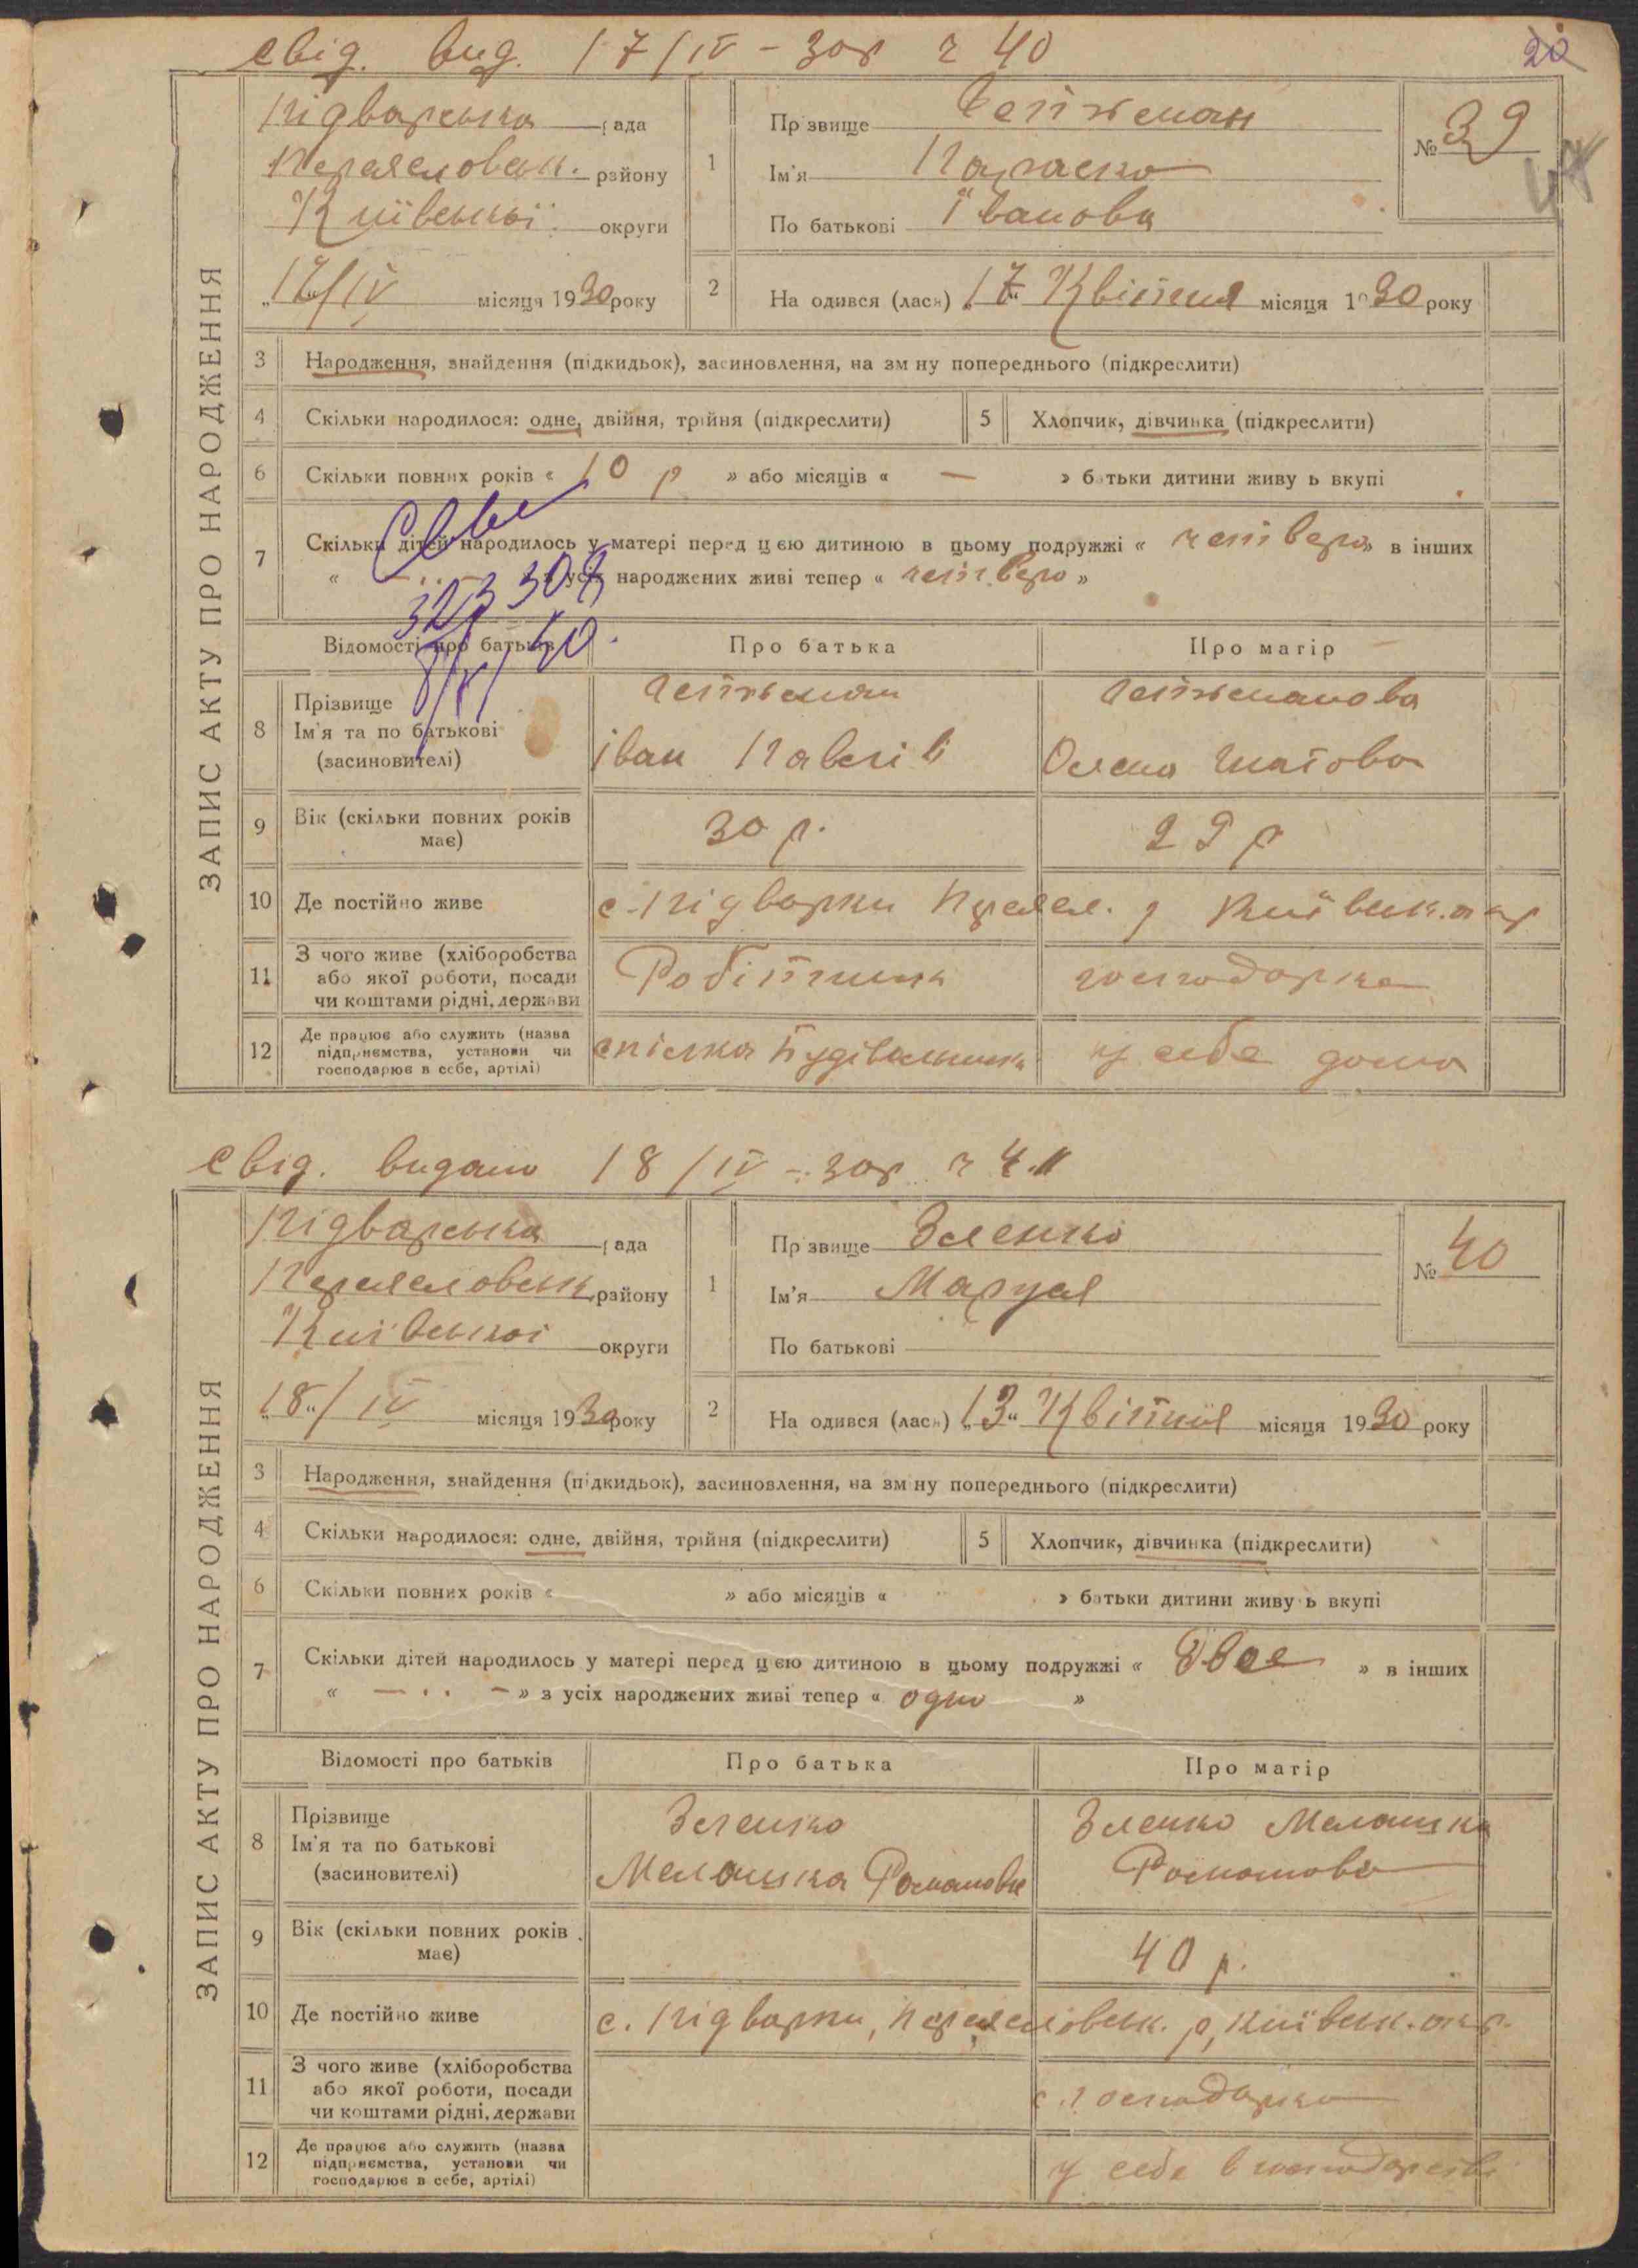 свід. вид. 17/IV – 30р ч 40
20
ЗАПИС АКТУ ПРО НАРОДЖЕННЯ
Підварська рада
Переясловськ. району
Київської округи
„17“/IV місяця 1930 року
1 Прізвище
Ім'я Параска
По батькові Іванова
№ 39
2 Народився (лася) „17“ Квітня місяця 1930 року
3 Народження, знайдення (підкидьок), засиновлення, на зміну попереднього (підкреслити)
4 Скільки народилося: одне, двійня, трійня (підкреслити)
5 Хлопчик, дівчинка (підкреслити)
6 Скільки повних років « 10 р » або місяців « — » батьки дитини живуть вкупі
7 Скільки дітей народилось у матері перед цією дитиною в цьому подружжі « четверо » в інших
« – .. – » з усіх народжених живі тепер « четверо »
Відомості про батьків
Про батька
Про матір
8 Прізвище
Ім'я та по батькові
(засиновителі)
Іван Павлів
Олена
9 Вік (скільки повних років
має)
30 р.
29 р
10 Де постійно живе
с. Підварки Переясл. р Київськ. окр
11 З чого живе (хліборобства
або якої роботи, посади
чи коштами рідні, держави
Робітник
господарка
12 Де працює або служить (назва
підприємства, установи чи
господарює в себе, артілі)
спілка будівельник
у себе дома
свід. видано 18/IV – 30р ч 41
ЗАПИС АКТУ ПРО НАРОДЖЕННЯ
Підварська рада
Переясловськ. району
Київської округи
„18“/IV місяця 1930 року
1 Прізвище Зленко
Ім'я Маруся
По батькові
№ 40
2 Народився (лася) „13“ Квітня місяця 1930 року
3 Народження, знайдення (підкидьок), засиновлення, на зміну попереднього (підкреслити)
4 Скільки народилося: одне, двійня, трійня (підкреслити)
5 Хлопчик, дівчинка (підкреслити)
6 Скільки повних років « » або місяців « » батьки дитини живуть вкупі
7 Скільки дітей народилось у матері перед цією дитиною в цьому подружжі « двоє » в інших
« – .. – » з усіх народжених живі тепер « одно »
Відомості про батьків
Про батька
Про матір
8 Прізвище
Ім'я та по батькові
(засиновителі)
Зленко
Мелашка Романова
Зленко Мелашка
Романова
9 Вік (скільки повних років
має)
40 р.
10 Де постійно живе
с. Підварки, Переясловськ. р, Київськ. окр.
11 З чого живе (хліборобства
або якої роботи, посади
чи коштами рідні, держави
с. господарка
12 Де працює або служить (назва
підприємства, установи чи
господарює в себе, артілі)
у себе в господарстві